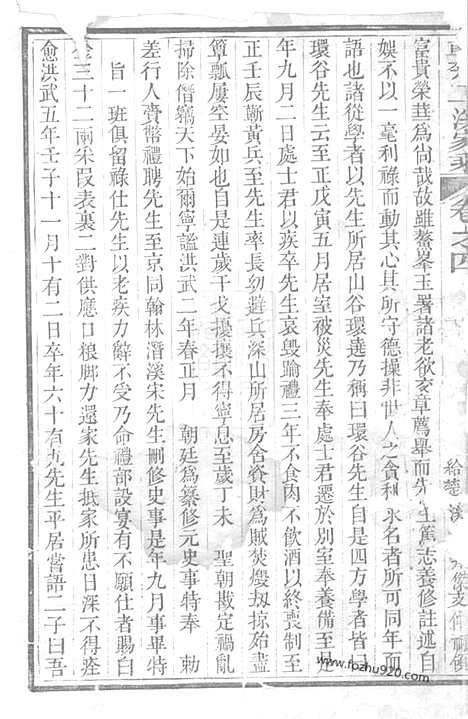 富貴榮華爲尚哉故雖鰲峯玉署諸老欲交章薦舉而先生篤志養修註述自
娛不以一毫利祿而動其心其所守德操非世人之貪利求名者所可同年而
語也諸從學者以先生所居山谷環遶乃稱曰環谷先生自是四方學者皆曰
環谷先生云至正戊寅五月居室被災先生奉處士君遷於別室奉養備至是
年九月二日處士君以疾卒先生哀毀踰禮三年不食肉不飲酒以終喪制至
正壬辰蘄黃兵至先生率長幼避兵深山所居房舍賫財爲賊焚燬刼掠殆盡
簞瓢屢空晏如也自是連歲干戈擾攘不得寧息至歲丁未 聖朝戡定禍亂
掃除僭竊天下始爾寧謐洪武二年春正月 朝廷爲纂修元史事特奉 勅
差行人賫幣禮聘先生至京同翰林潛溪宋先生刪修史事是年九月事畢特
旨一班俱留祿仕先生以老疾力辭不受乃命禮部設宴有不願仕者賜白
金三十二兩采叚表裏二對供應口粮脚力還家先生抵家所患日深不得痊
愈洪武五年壬子十一月十有二日卒年六十有九先生平居嘗語二子曰吾
卷之四
www.fozhu920.com